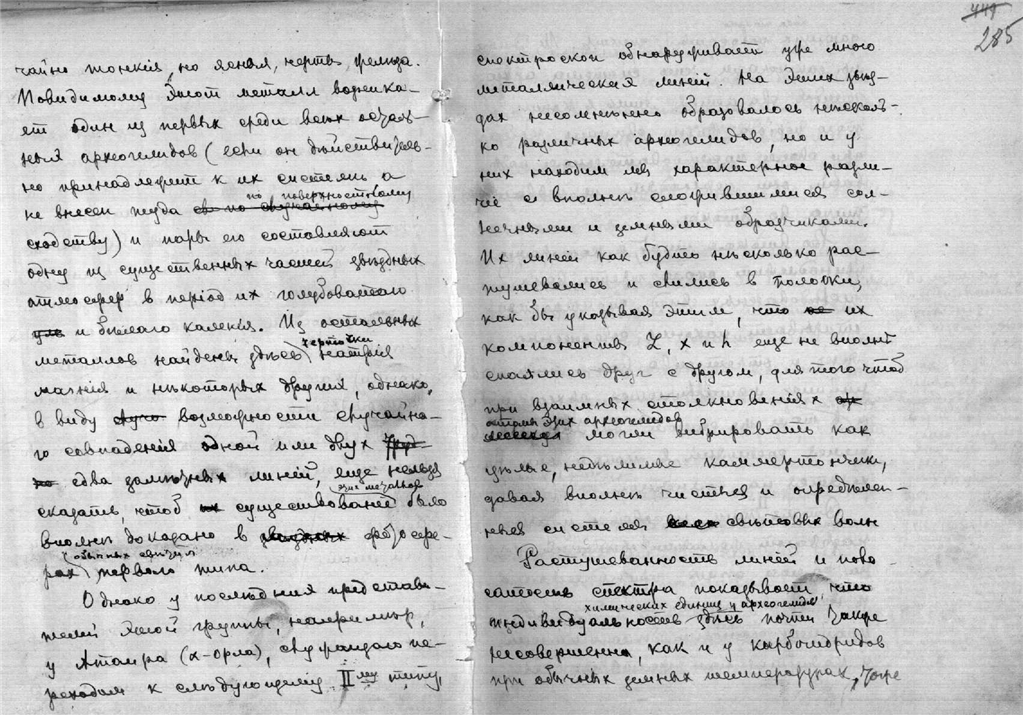 чайно тонкія, но ясныя, черты желѣза.
Повидимому этот металл возника-
ет один из первых среди всѣх осталь-
ныя археогелидов (если он дѣйствитель-
но принадлежит к их системѣ а
не внесен туда по поверхностному
сходству) и пары его составляют
одну из существенных частей звѣздных
атмосфер в період их голубоватого
и бѣлаго каленія. Из остальных
металлов найдены здѣсь черточки натрія
магнія и нѣкоторых других, однако,
в виду возможности случайна-
го совпаденія одной или двух
едва замѣтных линій, еще нельзя
сказать, чтоб существованіе было
вполнѣ доказано в фотосфе-
рах обычных свѣтил перваго типа.
Однако у послѣдних представи-
телей этой группы, напримѣр,
у Атаира (α-орла), служащаго пе-
реходом к слѣдующему II му типу,
285
спектроскоп обнаруживает уже много
металлических линій. На этих звѣз-
дах несомнѣнно образовалось нѣсколь-
ко различных археогелидов, но и у
них находим мы характерное разли-
чіе с вполнѣ сложившимися сол-
нечными и земными образчиками.
Их линіи как будто нѣсколько рас-
тушевались и слились в полоски,
как бы указывая этим, что их
компоненты Z, x и h еще не вполнѣ
спаялись друг с другом, для того чтоб
при взаимных столкновеніях
атомы этих археогелидов могли вибрировать как
цѣлые, недѣлимые каммертончики,
давая вполнѣ чистыя и опредѣлен-
ныя системы свѣтовых волн
Растушеванность линій и поло-
сатость спектра показывает, что
индивидуальность химических единиц у археогелидов здѣсь почти также
несовершенна, как и у карбогидридов
при обычных земных температурах,